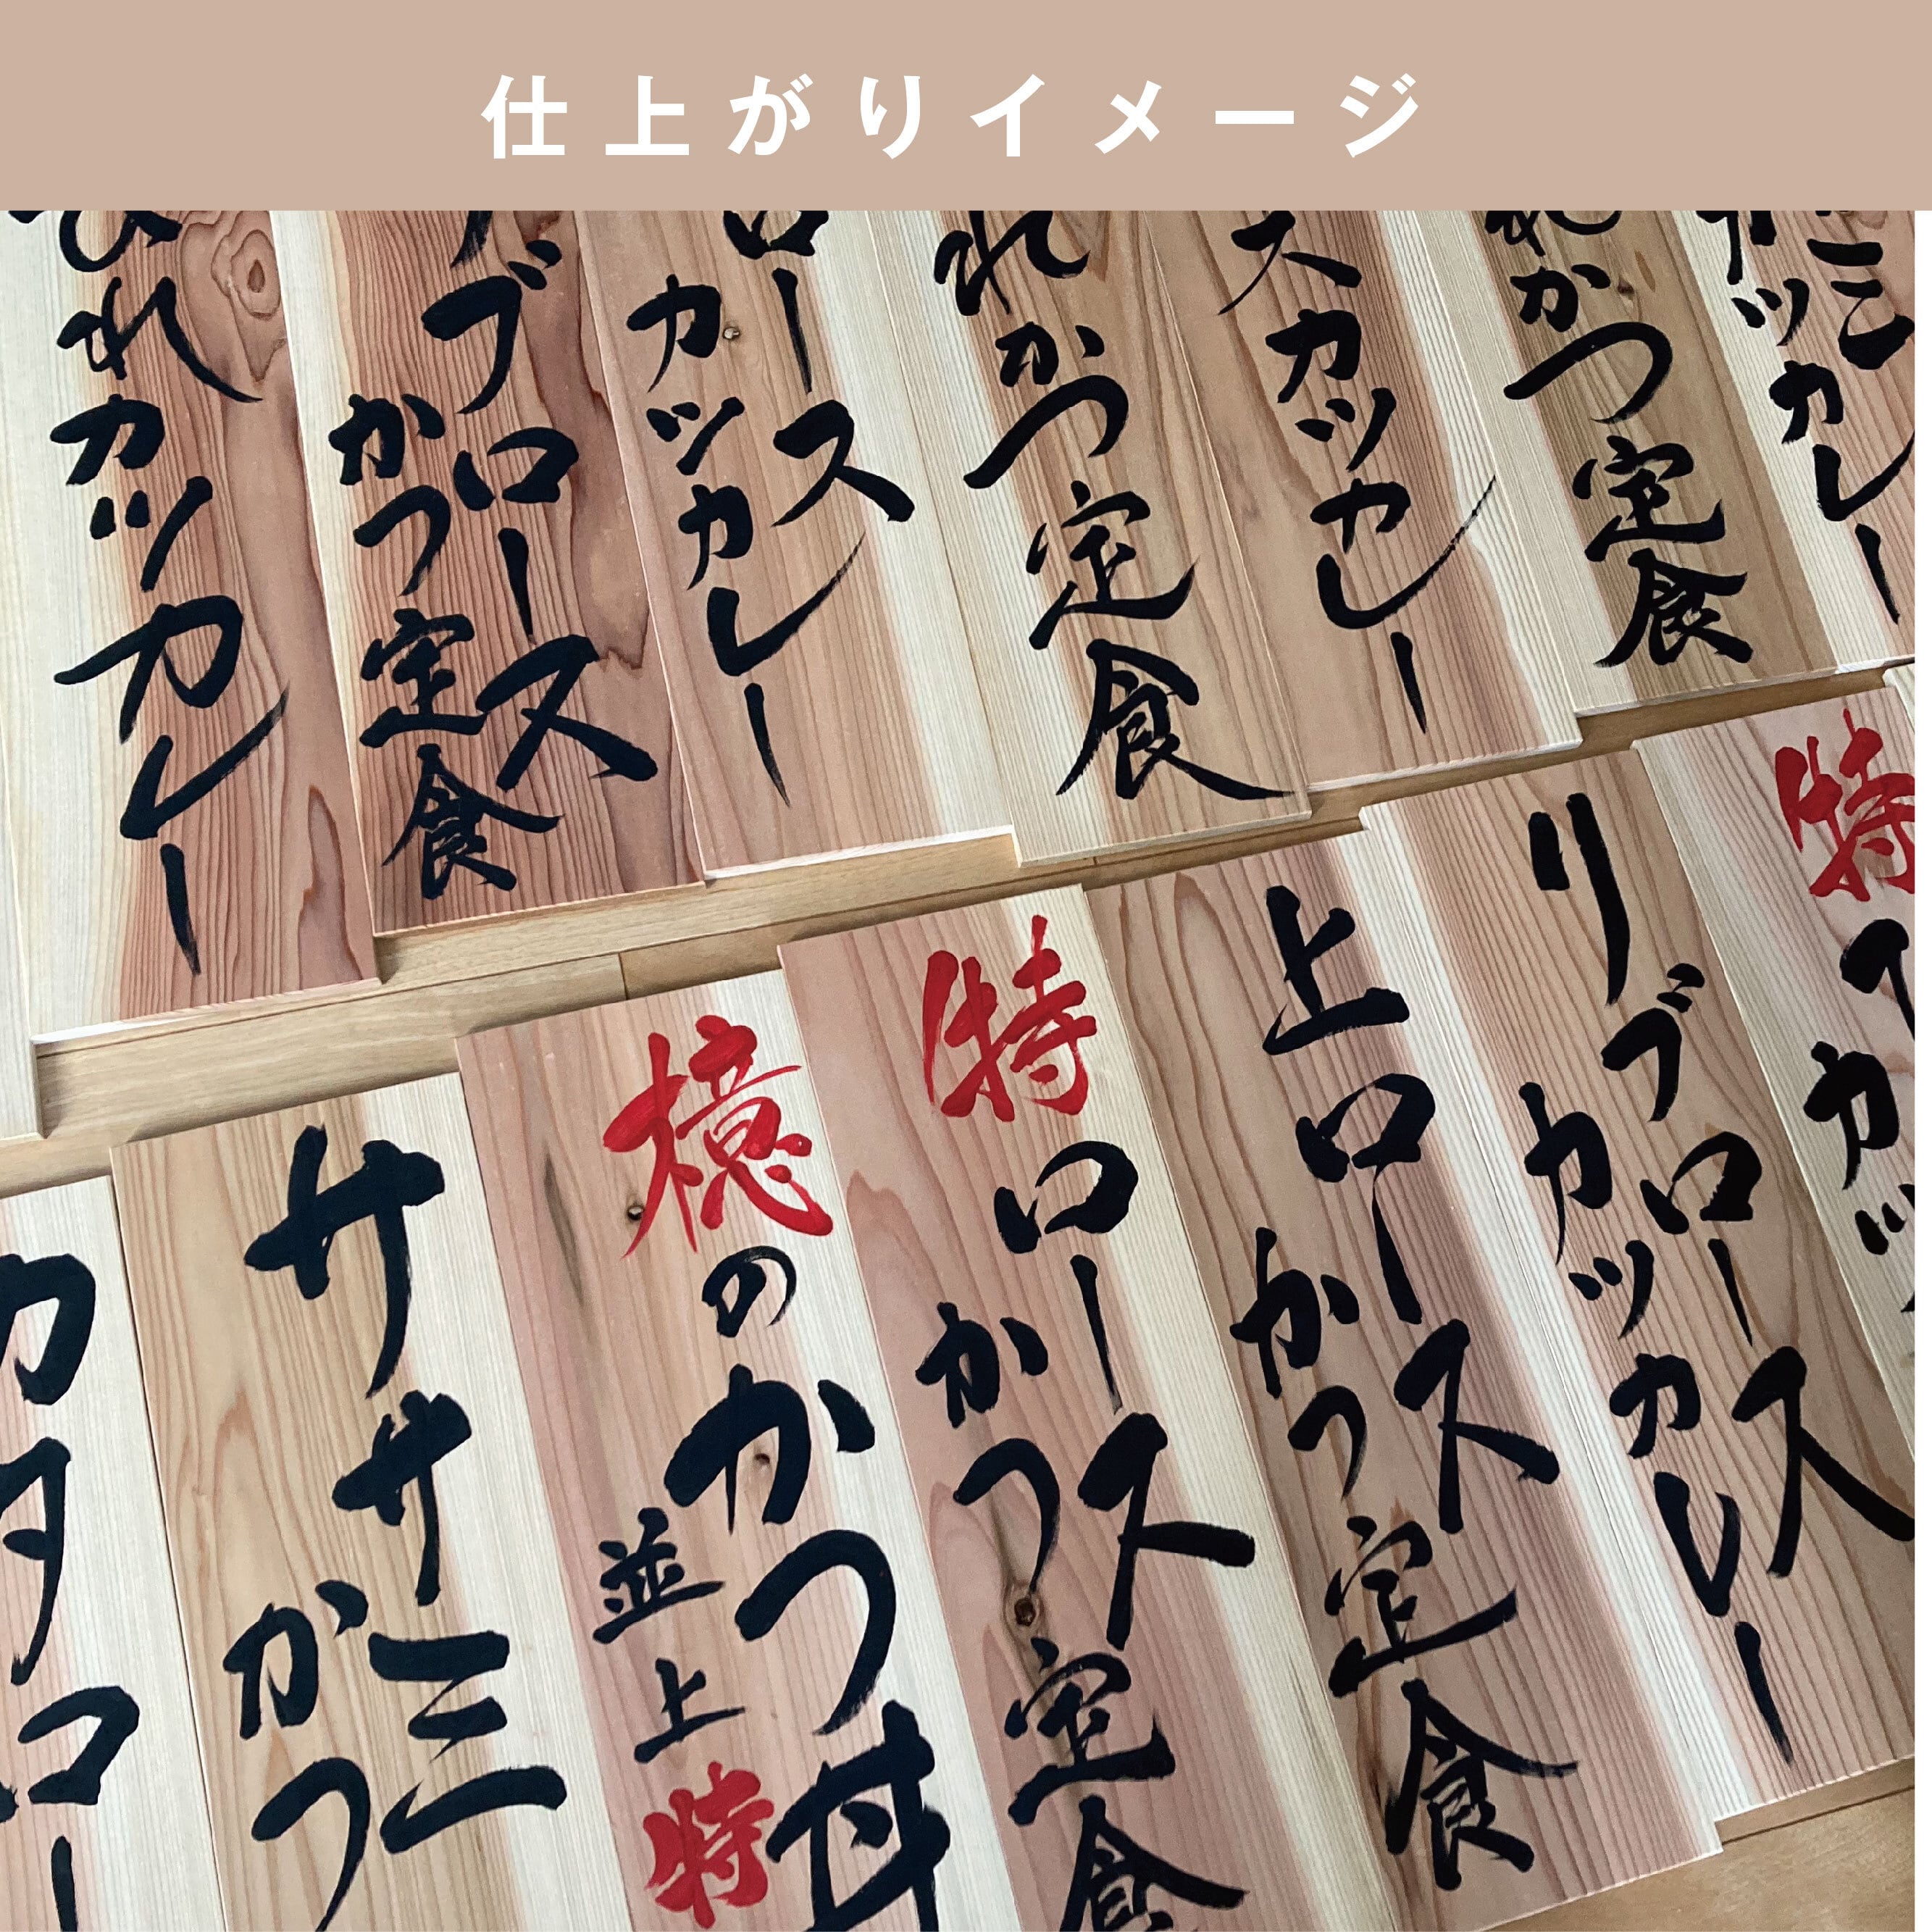 仕上がりイメージ
カツカレー
れかつ定食
スカツカレー
れかつ定食
ロース
カツカレー
ブロース
かつ定食
ひれカツカレー
特
カツ
リブロース
カツカレー
上ロース
かつ定食
特ロース
かつ定食
檍のかつ丼
並上特
ササミ
かつ
カタロー